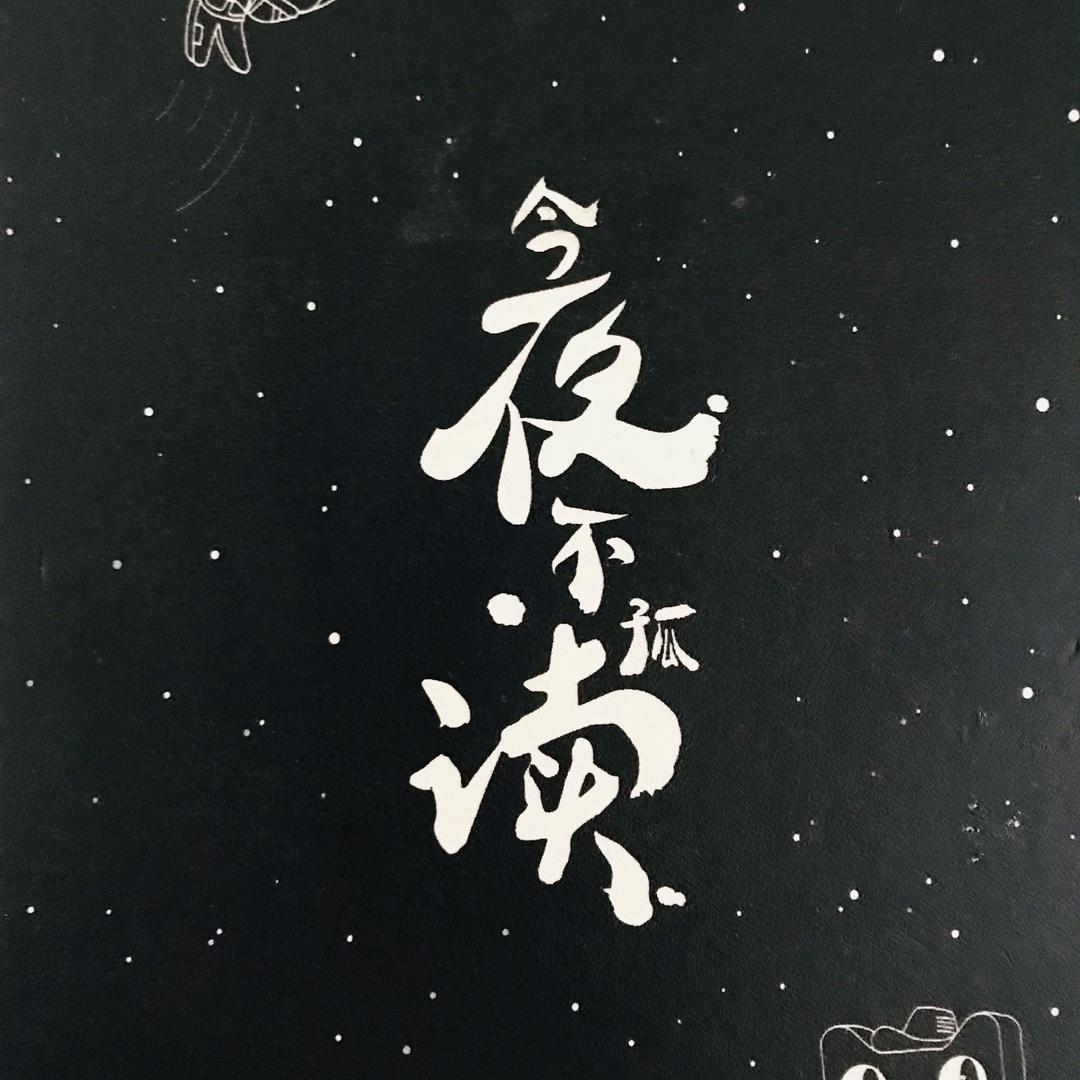 今夜不孤读